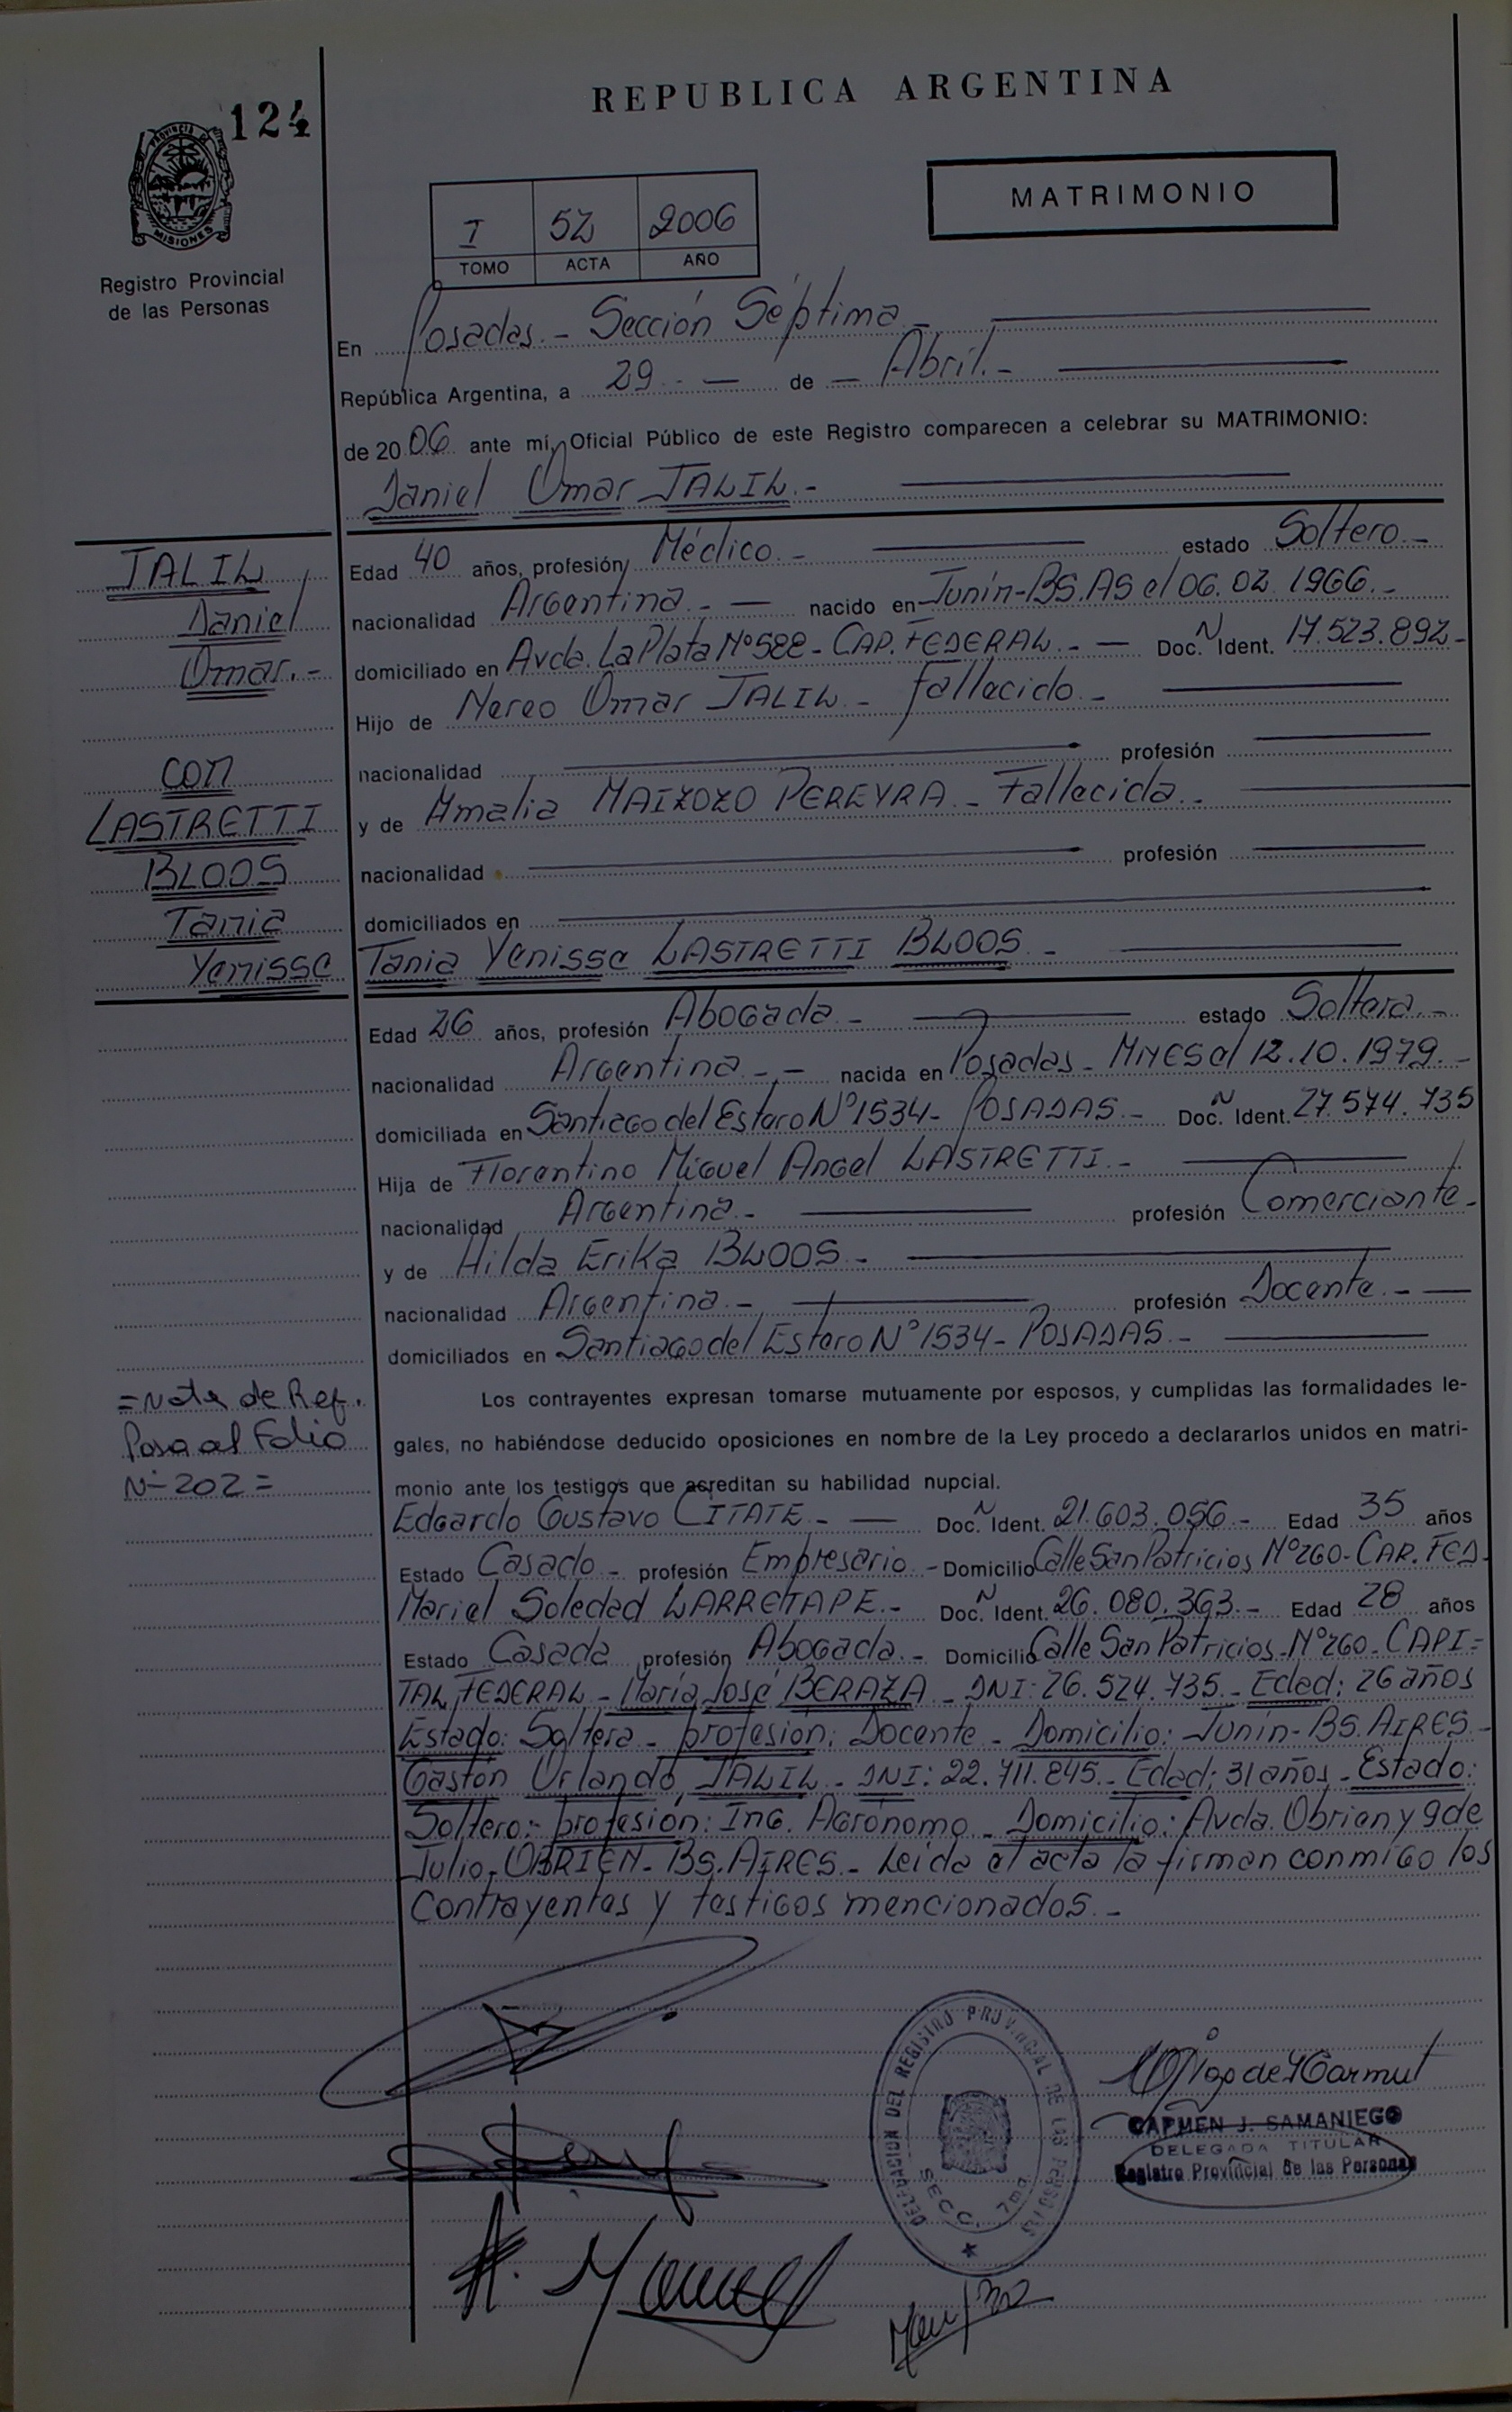 124
REPUBLICA ARGENTINA
PROVINCIA DE MISIONES
Registro Provincial
de las Personas
MATRIMONIO
I 52 2006
TOMO ACTA AÑO
En Posadas.- Sección Séptima.-
República Argentina, a 29.- de - Abril.-
de 2006 ante mí, Oficial Público de este Registro comparecen a celebrar su MATRIMONIO:
Daniel Omar JALIL.-
JALIL
Daniel
Omar.-
con
LASTRETTI
BLOOS
Tania
Yenisse
Edad 40 años, profesión Médico.- estado Soltero.-
nacionalidad Argentina.- nacido en Junín-BS.AS el 06.02.1966.-
domiciliado en Avda. La Plata Nº 588- CAP. FEDERAL.- Doc. N Ident. 17.523.892-
Hijo de Nereo Omar JALIL.- fallecido.-
nacionalidad profesión
y de Amalia MAIZOZO PEREYRA.- Fallecida.-
nacionalidad profesión
domiciliados en
Tania Yenisse LASTRETTI BLOOS.-
Edad 26 años, profesión Abogada.- estado Soltera.-
nacionalidad Argentina.- nacida en Posadas- MNES el 12.10.1979.-
domiciliada en Santiago del Estero Nº 1534- POSADAS.- Doc. N Ident. 27.574.735
Hija de Florentino Miguel Angel LASTRETTI.-
nacionalidad Argentina.- profesión Comerciante-
y de Hilda Erika BLOOS.-
nacionalidad Argentina.- profesión Docente.-
domiciliados en Santiago del Estero Nº 1534- POSADAS.-
=Nota de Ref.
Pasa al Folio
Nº 202=
Los contrayentes expresan tomarse mutuamente por esposos, y cumplidas las formalidades le-
gales, no habiéndose deducido oposiciones en nombre de la Ley procedo a declararlos unidos en matri-
monio ante los testigos que acreditan su habilidad nupcial.
Edgardo Gustavo CITATE.- Doc. N Ident. 21.603.056.- Edad 35 años
Estado Casado- profesión Empresario.- Domicilio Calle San Patricios Nº 260- CAP. FED.
Mariel Soledad LARRETAPE.- Doc. N Ident. 26.080.363.- Edad 28 años
Estado Casada profesión Abogada.- Domicilio Calle San Patricios Nº 260- CAPI=
TAL FEDERAL- María José BERAZA- DNI: 26.524.735.- Edad: 26 años
Estado: Soltera- profesión: Docente- Domicilio: Junín-BS. AIRES.-
Gastón Orlando JALIL- DNI: 22.711.845.- Edad: 31 años- Estado:
Soltero:- profesión: Ing. Agrónomo- Domicilio: Avda. Obrien y 9 de
Julio, OBRIEN- BS. AIRES.- Leida el acta la firman conmigo los
contrayentes y testigos mencionados.-
DELEGACION DEL REGISTRO PROVINCIAL DE LAS PERSONAS
SECC. 7ma.
CARMEN J. SAMANIEGO
DELEGADA TITULAR
Registro Provincial de las Personas